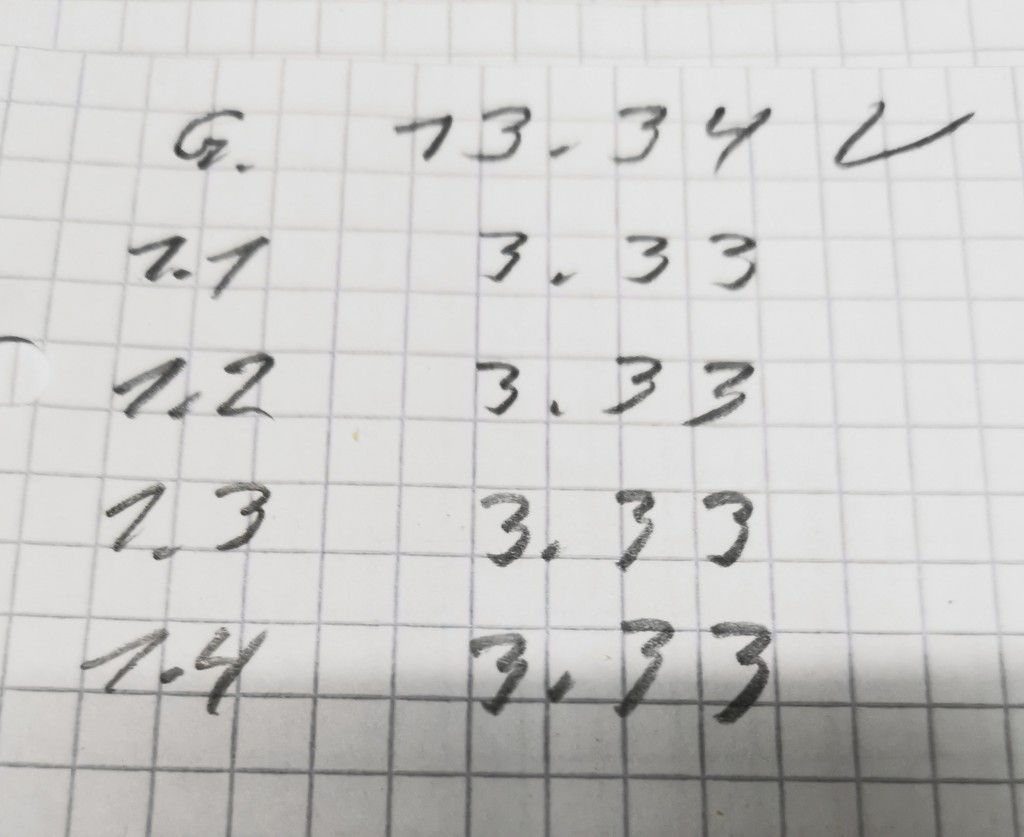 G. 13.34 ✓
1.1 3.33
1.2 3.33
1.3 3.33
1.4 3.33